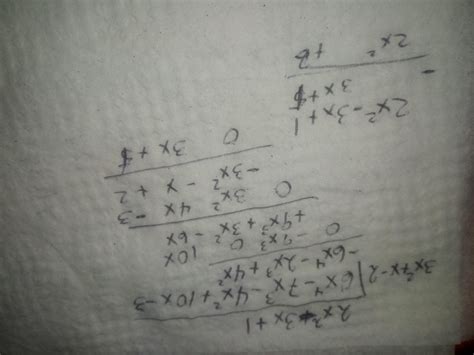 2x² - 3x + 1
3x²+x-2 6x⁴ - 7x³ - 4x² + 10x - 3
-6x⁴ - 2x³ + 4x²
0 -9x³ 0 10x
+9x³ + 3x² - 6x
0 3x² 4x -3
-3x² - x + 2
0 3x +
2x² - 3x + 1
- 3x +
2x² +